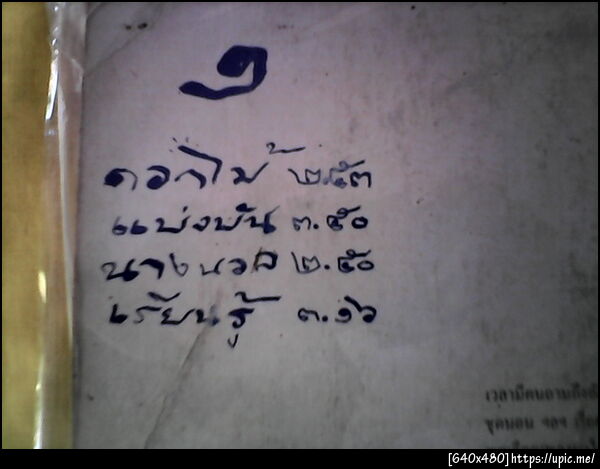 ๑
ดอกไม้ ๒.๕๓
แบ่งพัน ๓.๕๐
นางนวล ๒.๕๐
เรียนรู้ ๓.๑๖
เวลามีคนถามถึงสั
ชุดนอน ฯลฯ เรื่อ
[640x480]https://upic.me/